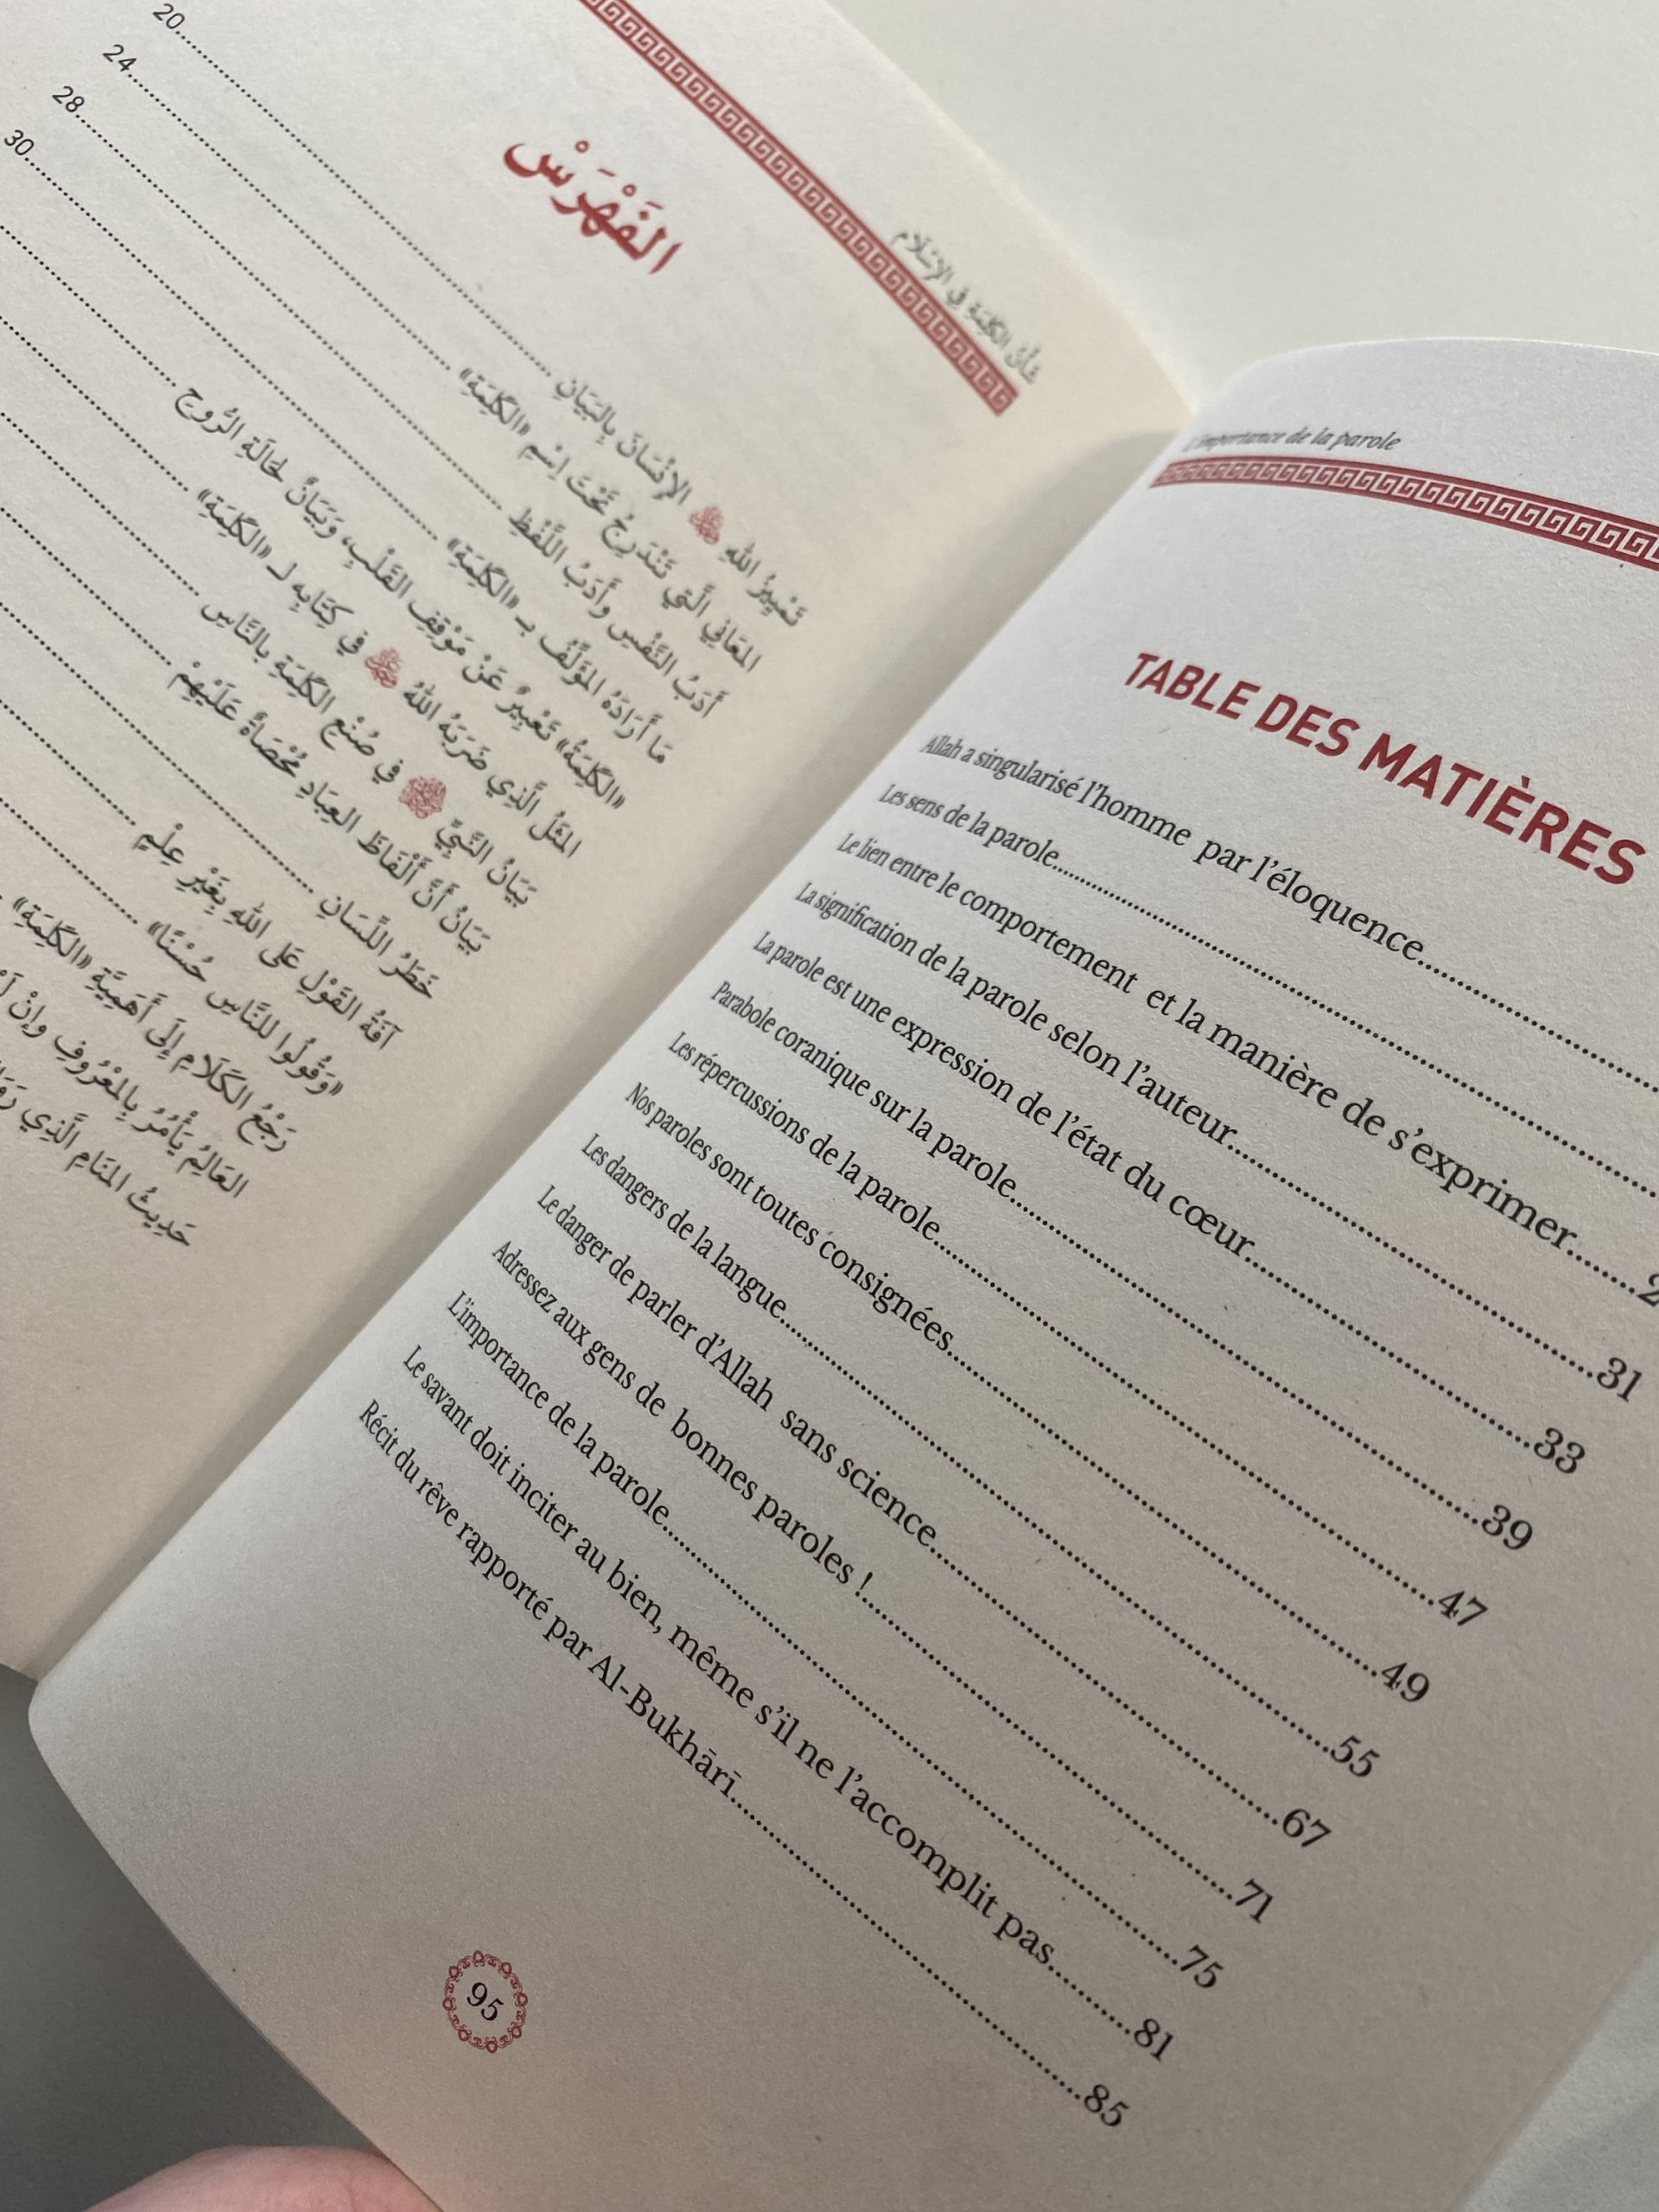 شَأْنُ الكَلِمَةِ فِي الإِسْلَامِ
الفَهْرَسْ
تَمْيِيزُ اللهِ ﷻ الإِنْسَانَ بِالبَيَانِ....................20
المَعَانِي الَّتِي تَنْدَرِجُ تَحْتَ اِسْمِ «الكَلِمَةِ»....................24
أَدَبُ النَّفْسِ وأَدَبُ اللَّفْظِ....................28
مَا أَرَادَهُ المُؤَلِّفُ بـ «الكَلِمَةِ»....................30
«الكَلِمَةُ» تَعْبِيرٌ عَنْ مَوْقِفِ القَلْبِ، وَبَيَانٌ لحَالَةِ الرُّوحِ
المَثَلُ الَّذِي ضَرَبَهُ اللهُ ﷻ فِي كِتَابِهِ لـ «الكَلِمَةِ»
بَيَانُ النَّبِيِّ ﷺ فِي صُنْعِ الكَلِمَةِ بالنَّاسِ
بَيَانُ أَنَّ أَلْفَاظَ العِبَادِ مُحْصَاةٌ عَلَيْهِمْ
خَطَرُ اللِّسَانِ
آفَةُ القَوْلِ عَلَى اللهِ بِغَيْرِ عِلْمٍ
«وَقُولُوا للنَّاسِ حُسْنًا»
رَجْعُ الكَلَامِ إِلَى أَهَمِيَّةِ «الكَلِمَةِ»
العَالِمُ يَأْمُرُ بِالمَعْرُوفِ وإِنْ
حَدِيثُ المَنَامِ الَّذِي
L'importance de la parole
TABLE DES MATIÈRES
Allah a singularisé l'homme par l'éloquence....................
Les sens de la parole....................
Le lien entre le comportement et la manière de s'exprimer..........2
La signification de la parole selon l'auteur....................31
La parole est une expression de l'état du cœur....................33
Parabole coranique sur la parole....................39
Les répercussions de la parole....................47
Nos paroles sont toutes consignées....................49
Les dangers de la langue....................55
Le danger de parler d'Allah sans science....................67
Adressez aux gens de bonnes paroles !....................71
L'importance de la parole....................75
Le savant doit inciter au bien, même s'il ne l'accomplit pas..........81
Récit du rêve rapporté par Al-Bukhārī....................85
95